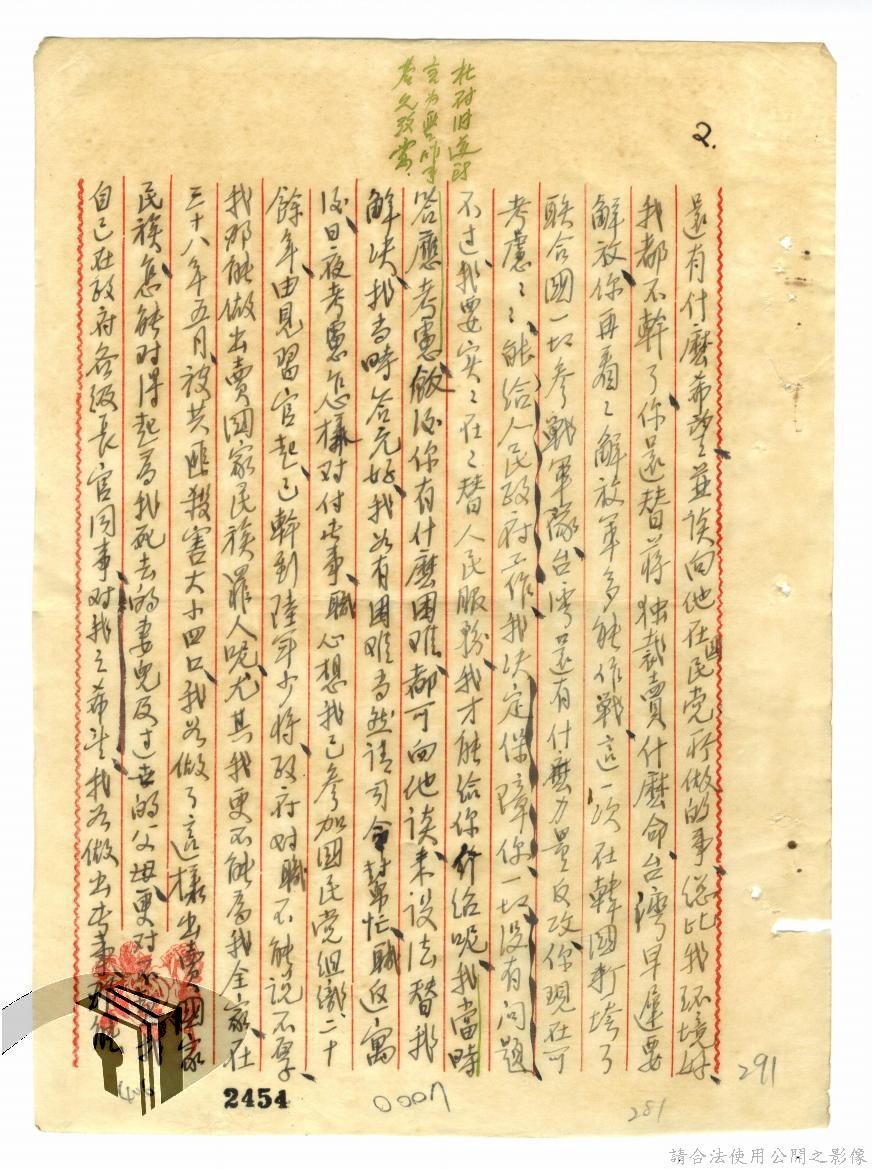 2.
還有什麼希望、並談向他在國民党所做的事、總比我环境好、
我都不幹了、你還替蔣独裁賣什麼命、台灣早遲要
解放、你再看々解放軍多能作戰、這一次在韓國打垮了
联合國一切参戰軍隊、台湾還有什麽力量反攻、你現在可
考慮々々、能給人民政府工作、我决定保障你一切没有问题、
不过我要实々在々替人民服務、我才能給你介给呢、我當時
答應考慮、飯後你有什麼困难、都可向他谈、来设法替我
解决、我當時答允好、我若有困难當然请司令帮忙、職返寓
後、日夜考慮怎様对付此事、職心想我已參加國民党组織二十
餘年、由見習官起、已幹到陸军少将、政府对職不能说不厚、
我那能做出賣國家民族罪人呢、尤其我更不能為我全家在
三十八年五月、被共匪殺害大小四口、我若做了這樣出賣國家
民族、怎能对得起為我死去的妻兒及过去的父母、更对我
自己在政府各級長官同事对我之希望、我若做出此事
291
281
0007
2454
請合法使用公開之影像